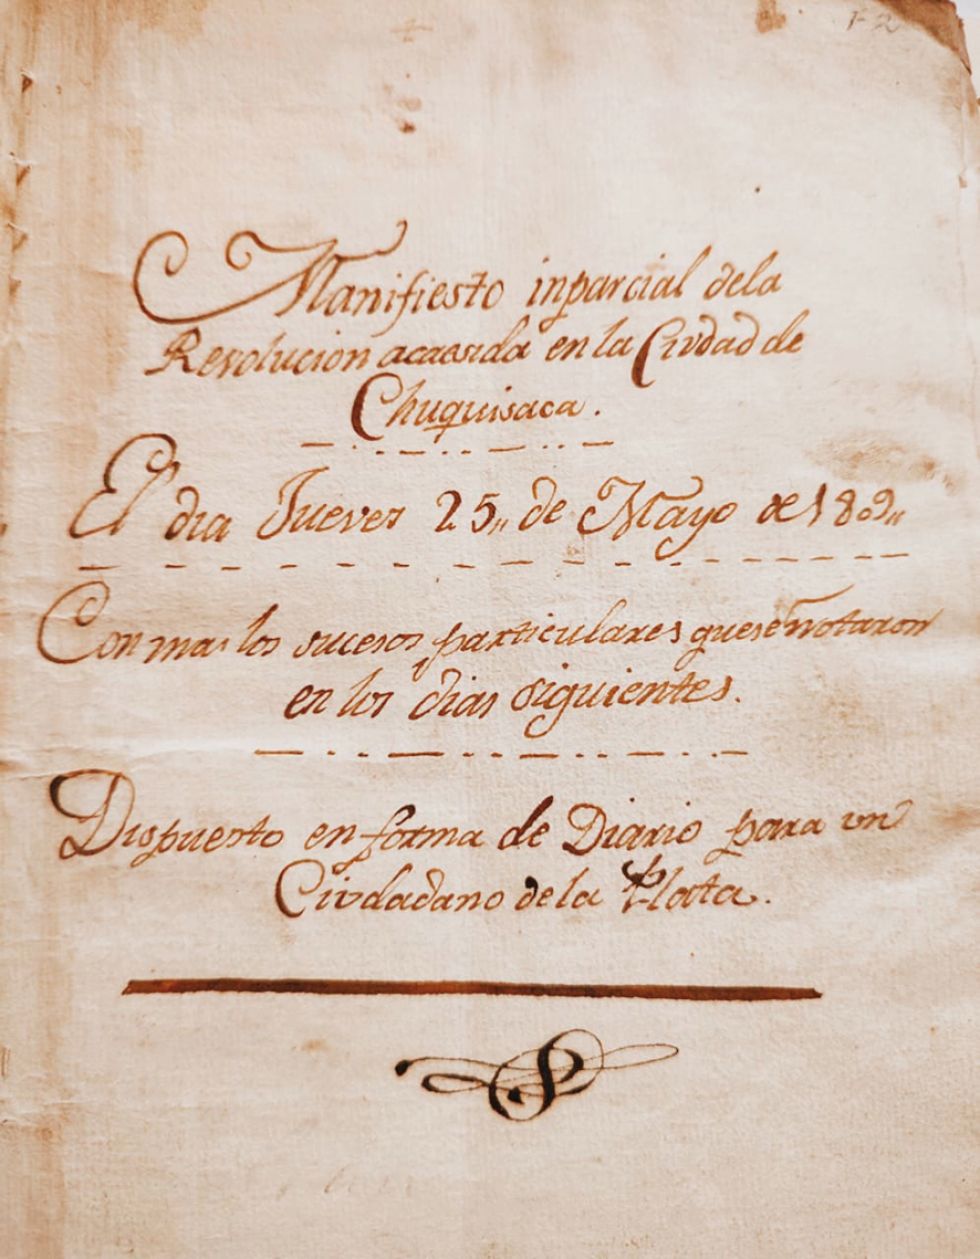 F 2
Manifiesto inparcial dela
Revolucion acaesida en la Civdad de
Chuquisaca.
El dia Jueves 25,, de Mayo de 1809,,
Con mas los sucesos particulares que se notaron
en los dias siguientes.
Dispuesto en forma de Diario para vn
Civdadano de la Plata.